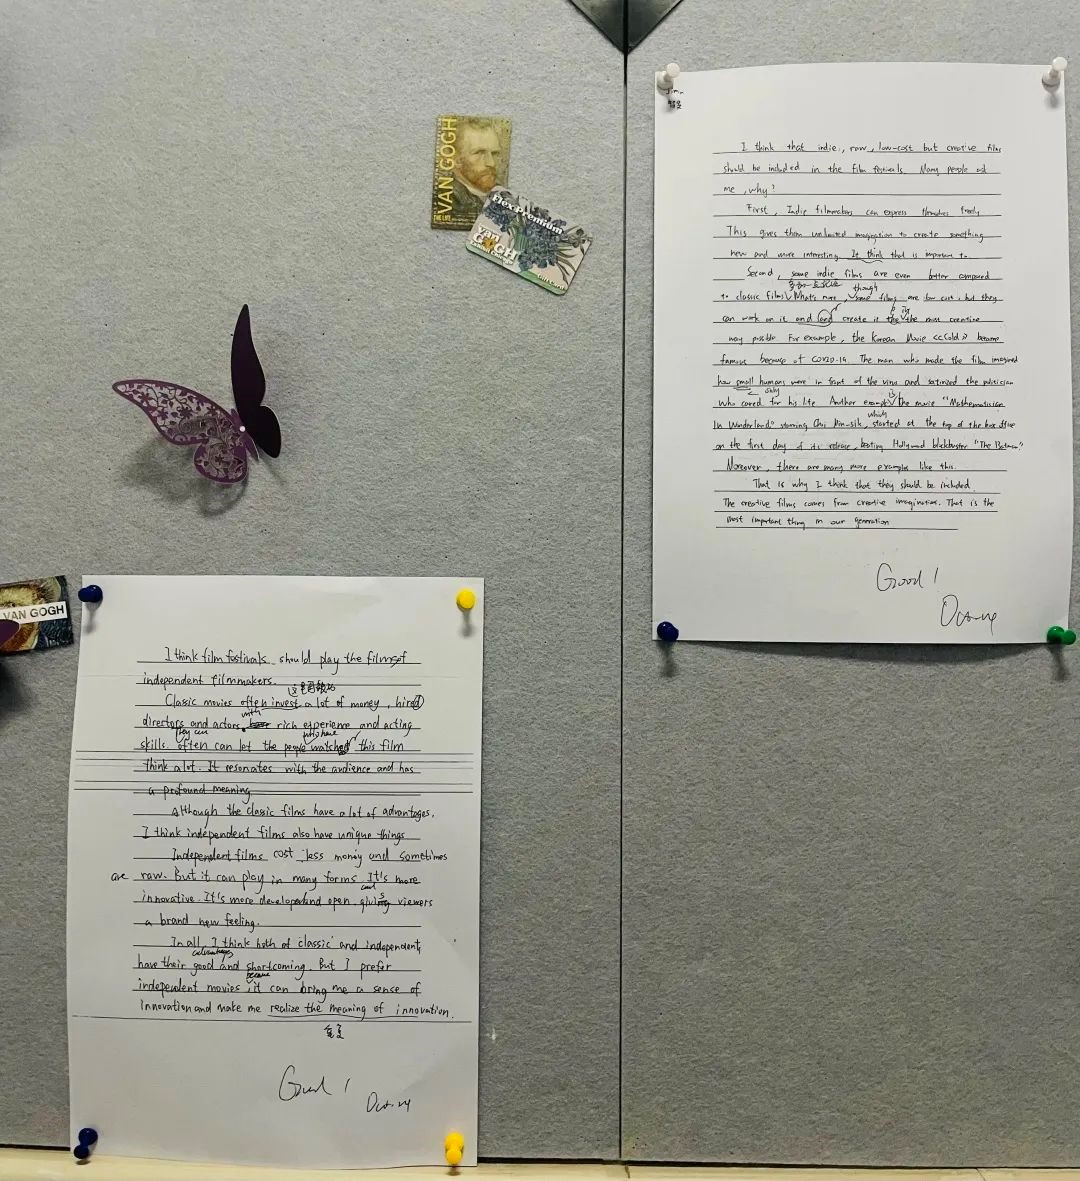 VAN GOGH
THE LIFE
Flex Premium
van
GOGH
VAN GOGH
I think film festivals should play the films of
independent filmmakers.
Classic movies often invest a lot of money, hired
directors and actors with rich experience and acting
skills. They can often can let the people who have watched this film
think a lot. It resonates with the audience and has
a profound meaning
Although the classic films have a lot of advantages,
I think independent films also have unique things
Independent films cost less money and sometimes
are raw. But it can play in many forms It's more
innovative. It's more developed and open, giving viewers
a brand new feeling.
In all, I think both of classic and independent,
have their good advantages and shortcoming. But I prefer
independent movies, because it can bring me a sense of
innovation and make me realize the meaning of innovation.
重复
Good!
I think that indie, raw, low-cost but creative films
should be included in the film festivals. Many people ask
me, why?
First, Indie filmmakers can express themselves freely
This gives them unlimited imagination to create something
new and more interesting. It think that is important to.
Second, some indie films are even better compared
to classic films. What's more, though some films are low cost, but they
can work on it and and create it the is the most creative
way possible. For example, the Korean Movie <<Cold>> became
famous because of COVID-19. The man who made the film imagined
how small humans were in front of the virus and satirized the politician
who cared only for his life. Another example is the movie "Mathematician
In Wonderland" starring Choi Min-sik, which started at the top of the box office
on the first day of its release, beating Hollywood blockbuster "The Batman"
Moreover, there are many more examples like this.
That is why I think that they should be included.
The creative films comes from creative imagination. That is the
most important thing in our generation
Good!